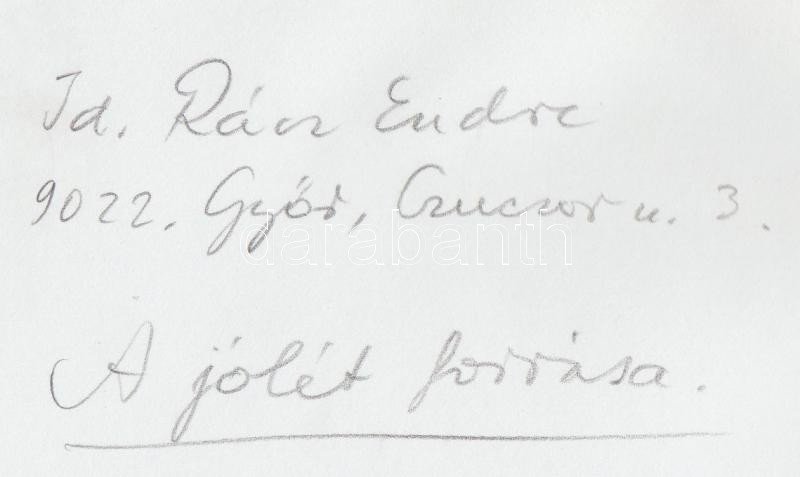 Id. Rácz Endre
9022. Győr, Czuczor u. 3.
darabanth
A jólét forrása.